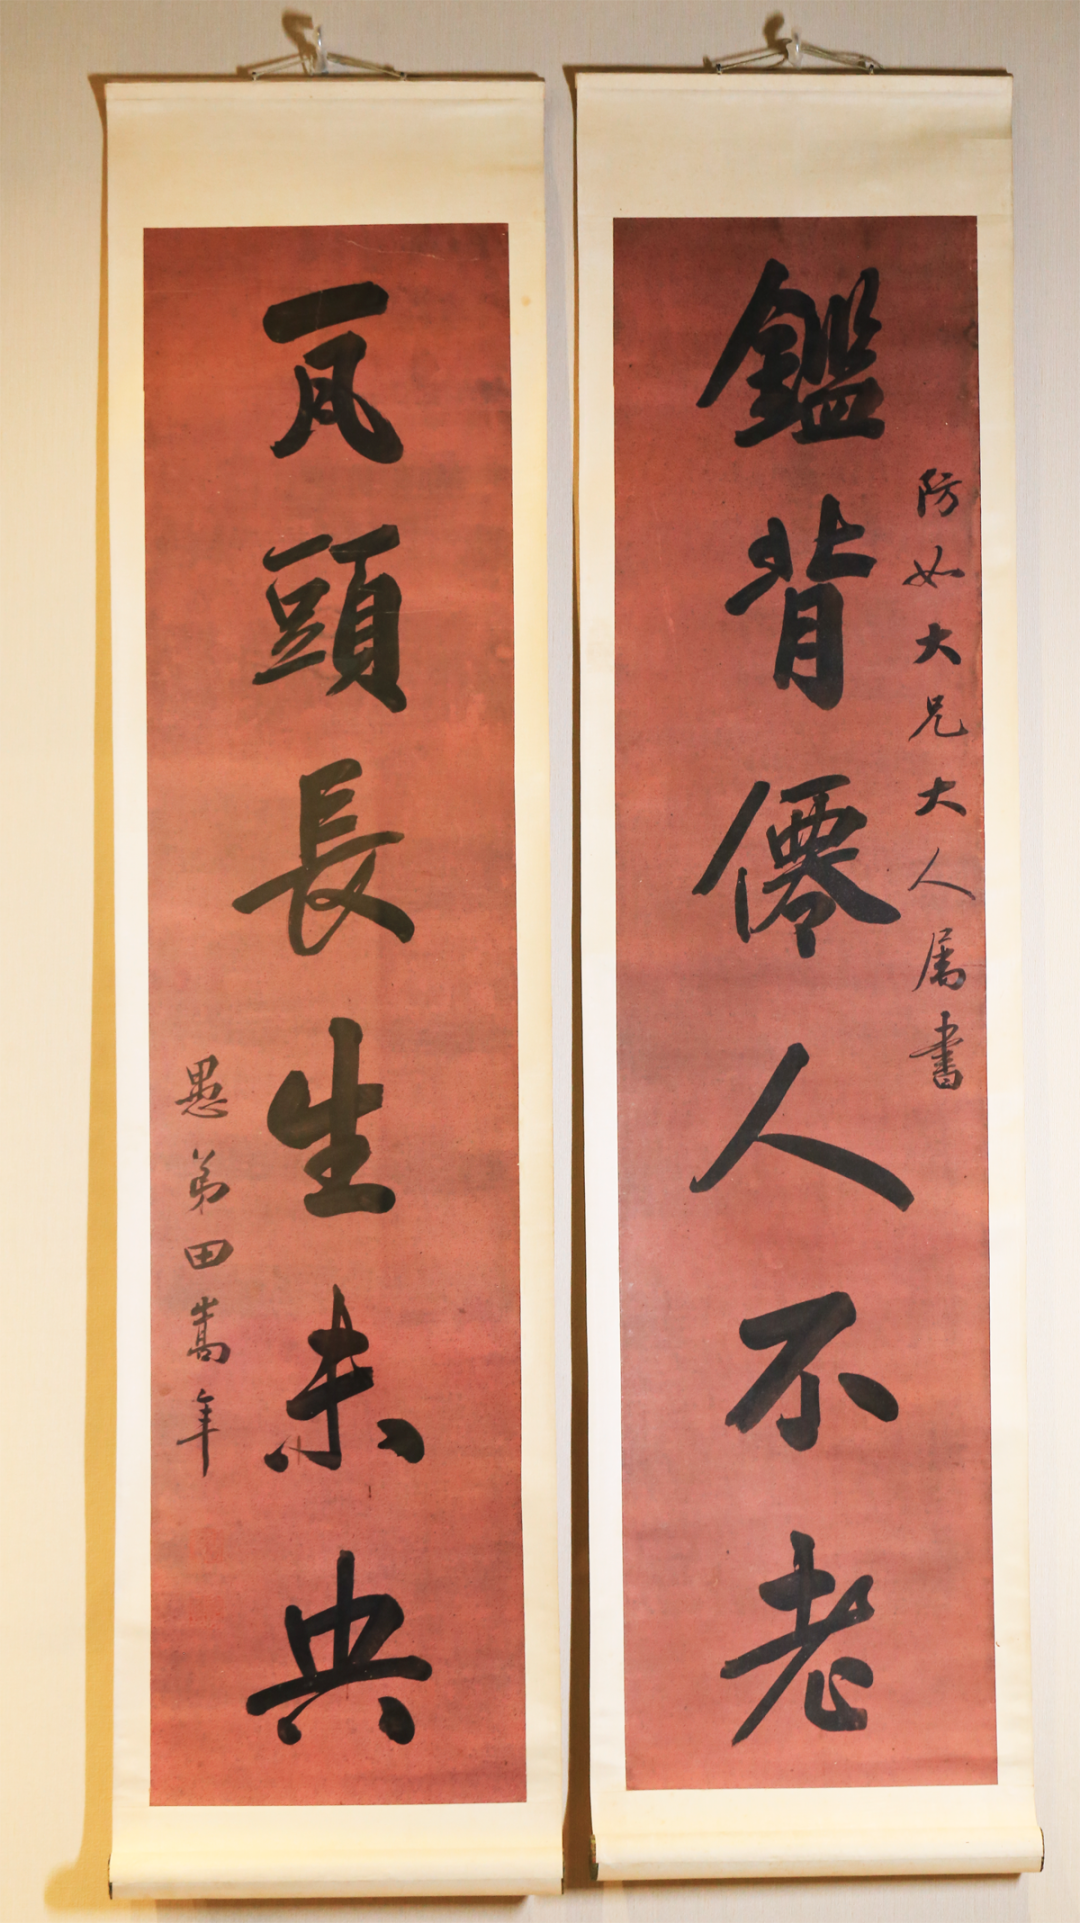 防如大兄大人属書
鑑背僊人不老
瓦頭長生未央
愚弟田嵩年